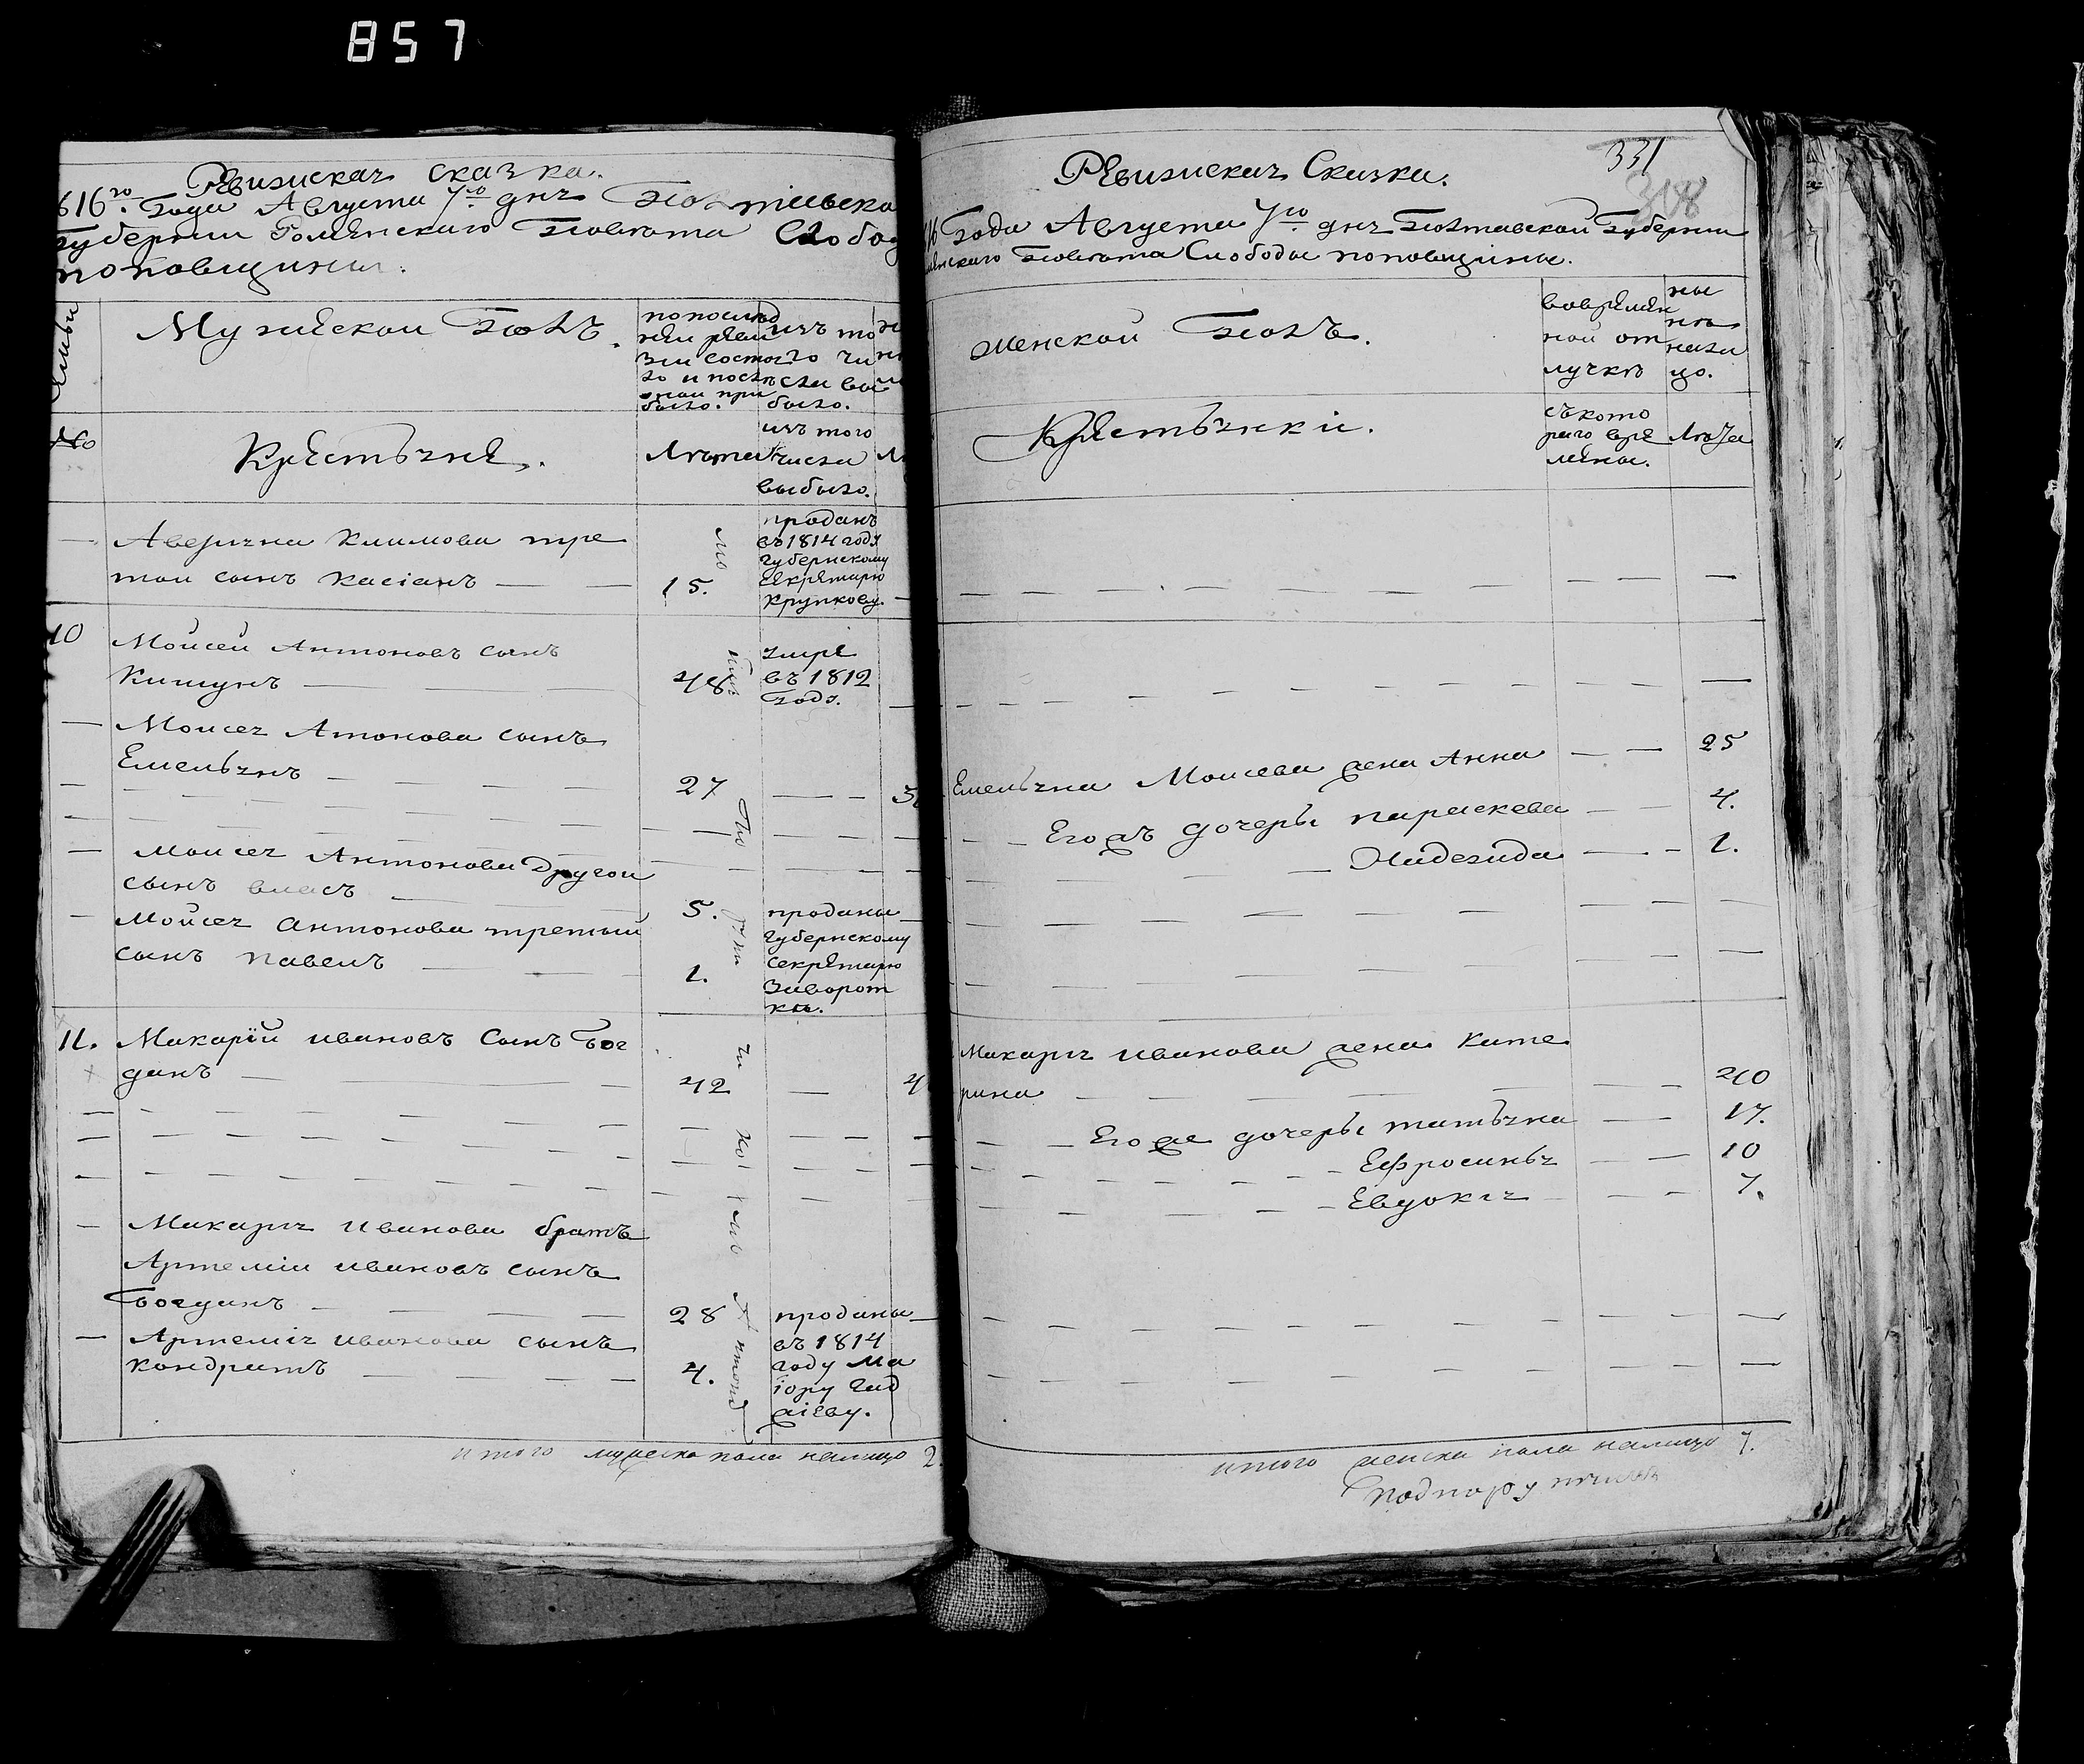 857
Ревизская сказка.
816го Года Августа 7го дня Полтавско
Губернии Роменскаго Повета Слобод
поповщины.
Мужескои Полъ.
попослед
неи реви
зии состоя
ло и после
оной при
было.
изъ то
го чи
сла вы
было.
Крестьяне.
Лета
изъ того
числа
выбыло.
— Аверкия Климова тре
тои сынъ Касіанъ — — 15.
проданъ
въ 1814 году
губернскому
секретарю
Крупкову.
10 Моисеи Антоновъ сынъ
Кишунъ — — 48
умре
въ 1812
году.
— Моисея Антонова сынъ
Емельянъ — — 27
— Моисея Антонова Другои
сынъ власъ — — 5.
— Моисея Антонова третьий
сынъ павелъ — — 1.
проданы
губернскому
секретарю
Заворот
ке.
11. Макарій ивановъ Сынъ Бог
данъ — — 42 —
— Макария Иванова братъ
Артемии ивановъ сынъ
Богданъ — — 28
— Артемия иванова сынъ
кондратъ — — 4.
проданы
въ 1814
году Ма
іору
итого мужеска пола налицо 2.
331
308
Ревизская Сказка.
16 Года Августа 7го дня Полтавской Губернии
менскаго Повета Слободы поповщины.
женской Полъ.
вовремен
ной от
лучке
ны
не
нали
цо.
Крестьянки.
съкото
раго вре
мены.
Лета
Емельяна Моисева жена Анна — — 25
— — Его жъ дочеры параскева — — 4.
Надежда — — 1.
Макария иванова жена Кате
рина — — 40
— — Его же дочеры татьяна — — 17.
Ефросинья — — 10
Евдокия — — 7.
итого женска пола налицо 7.